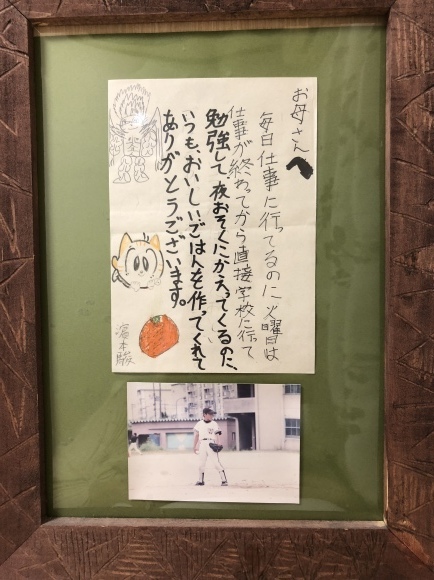 お母さんへ
毎日仕事に行ってるのに火曜日は
仕事が終わってから直接学校に行って
勉強して、夜おそくにかえってくるのに、
いつも、おいしいごはんを作ってくれて
ありがとうございます。
濱本駿